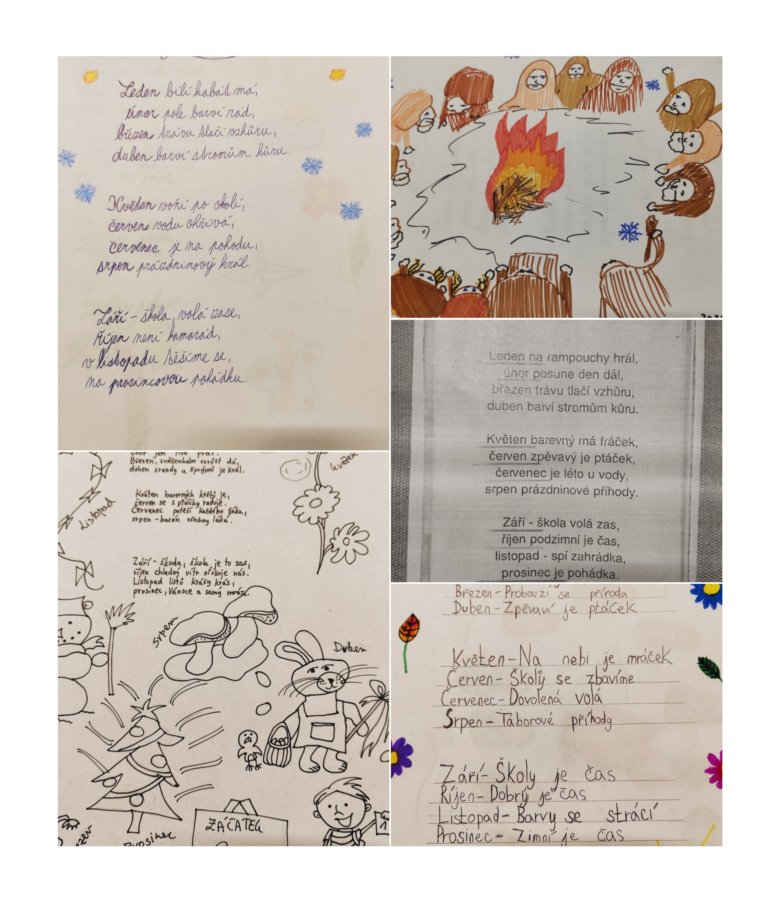 Leden bílí kabát má,
únor pole barví rád,
březen trávu tlačí vzhůru,
duben barví stromům kůru.
Květen voní po okolí,
červen vodu ohřívá,
červenec je na pohodu,
srpen prázdninový král.
Září - škola, volá zase,
Říjen není kamarád,
v listopadu těšíme se,
na prosincovou pohádku.
Leden na rampouchy hrál,
únor posune den dál,
březen trávu tlačí vzhůru,
duben barví stromům kůru.
Květen barevný má fráček,
červen zpěvavý je ptáček,
červenec je léto u vody,
srpen prázdninové příhody.
Září - škola volá zas,
říjen podzimní je čas,
listopad - spí zahrádka,
prosinec je pohádka,
Únor jen
Březen, sněženkám vyrůst dá,
duben srandy a je král.
Květen
Listopad
Květen barevných květů je,
červen se s ptáčky raduje.
Červenec potěší každého žáka,
srpen - bazén všechny láká.
Září - Škoda, škola je tu zas,
říjen chladný vítr ofukuje nás.
Listopad listů krásy krás,
prosinec, Vánoce a samý mráz.
Srpen
Duben
ZÁČÁTEG
Prosinec
Březen - Probouzí se příroda
Duben - Zpěvaví je ptáček
Květen - Na nebi je mráček
Červen - Školy se zbavíme
Červenec - Dovolená volá
Srpen - Táborové příhody
Září - Školy je čas
Říjen - Dobrý je čas
Listopad - Barvy se strácí
Prosinec - Zimní je čas